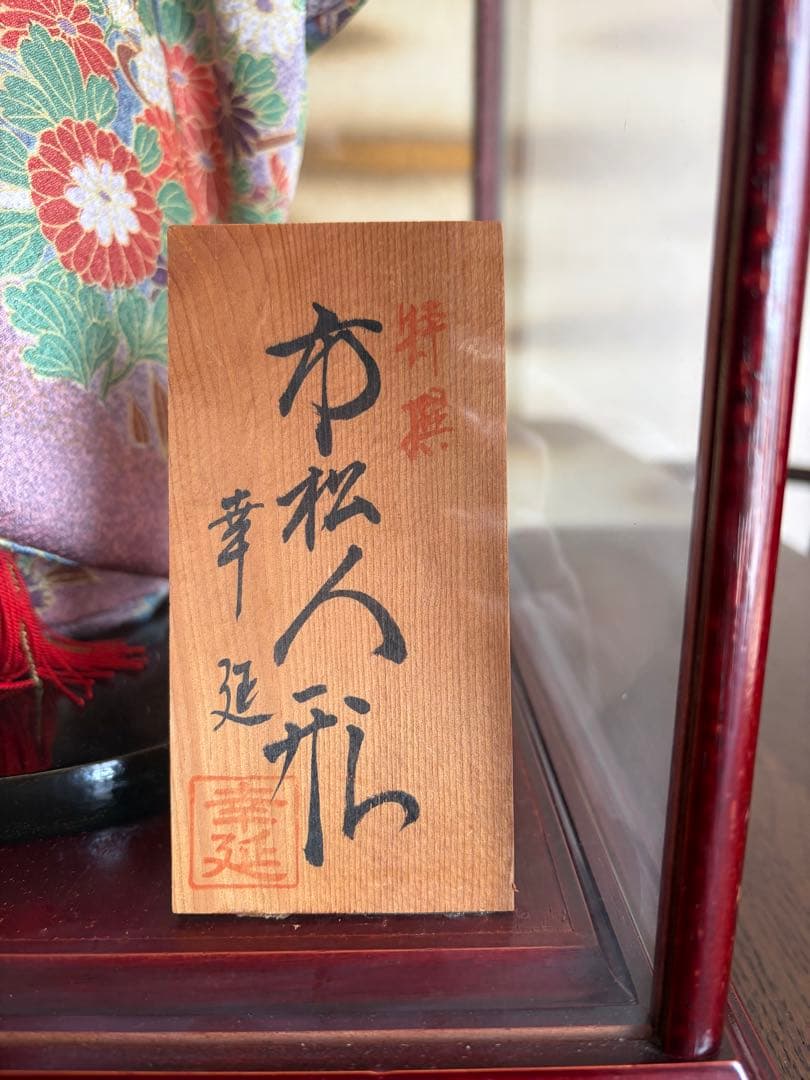 特撰
市松人形
幸延
幸延